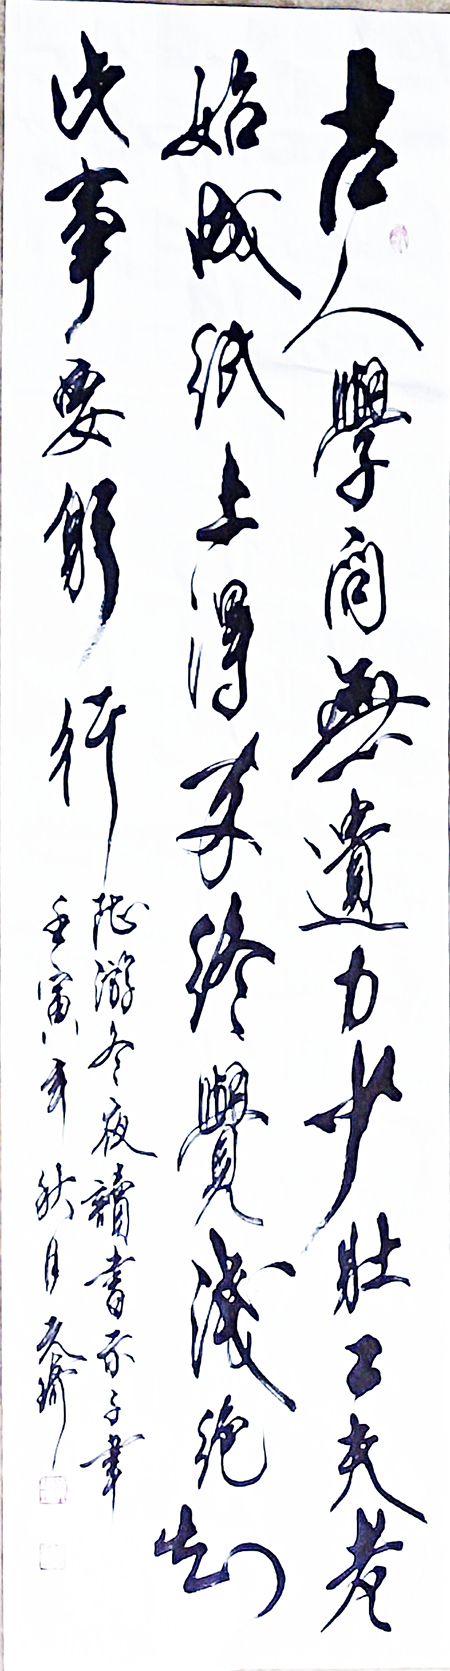 古人學問無遺力少壯工夫老
始成紙上得来終覺淺絕知
此事要躬行
陸游冬夜讀書示子聿
壬寅年秋月